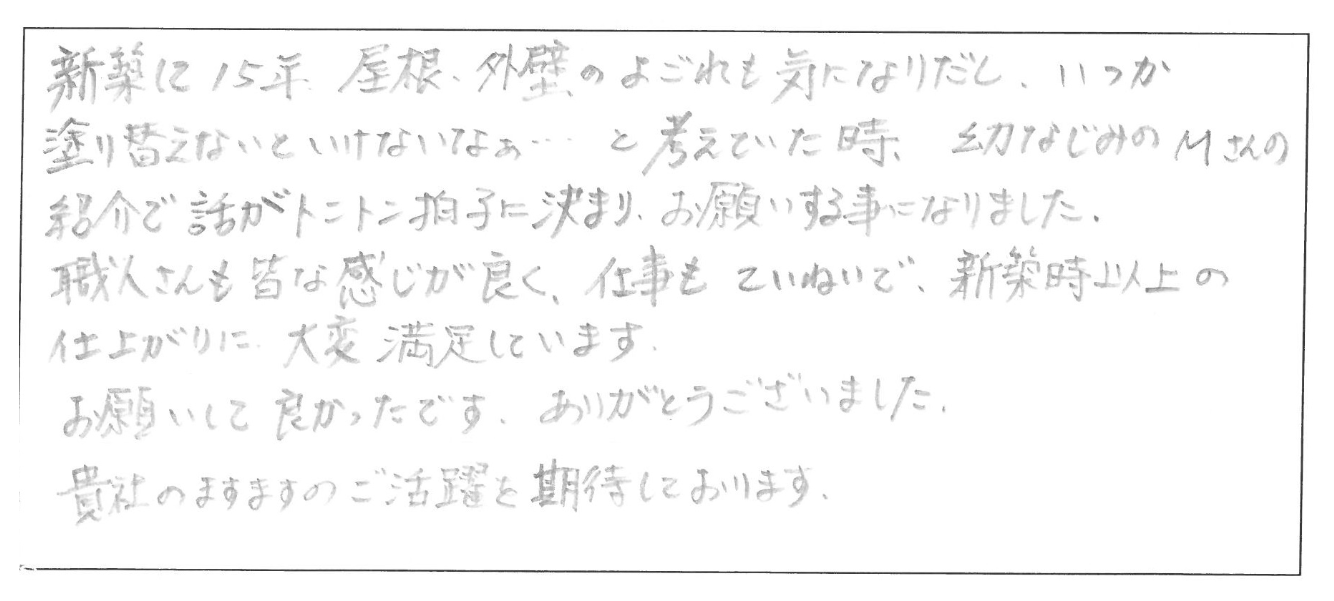 新築に15年、屋根、外壁のよごれも気になりだし、いつか
塗り替えないといけないなぁ…と考えていた時、幼なじみのMさんの
紹介で話がトントン拍子に決まり、お願いする事になりました。
職人さんも皆な感じが良く、仕事もていねいで、新築時以上の
仕上がりに、大変満足しています。
お願いして良かったです。ありがとうございました。
貴社のますますのご活躍を期待しております。